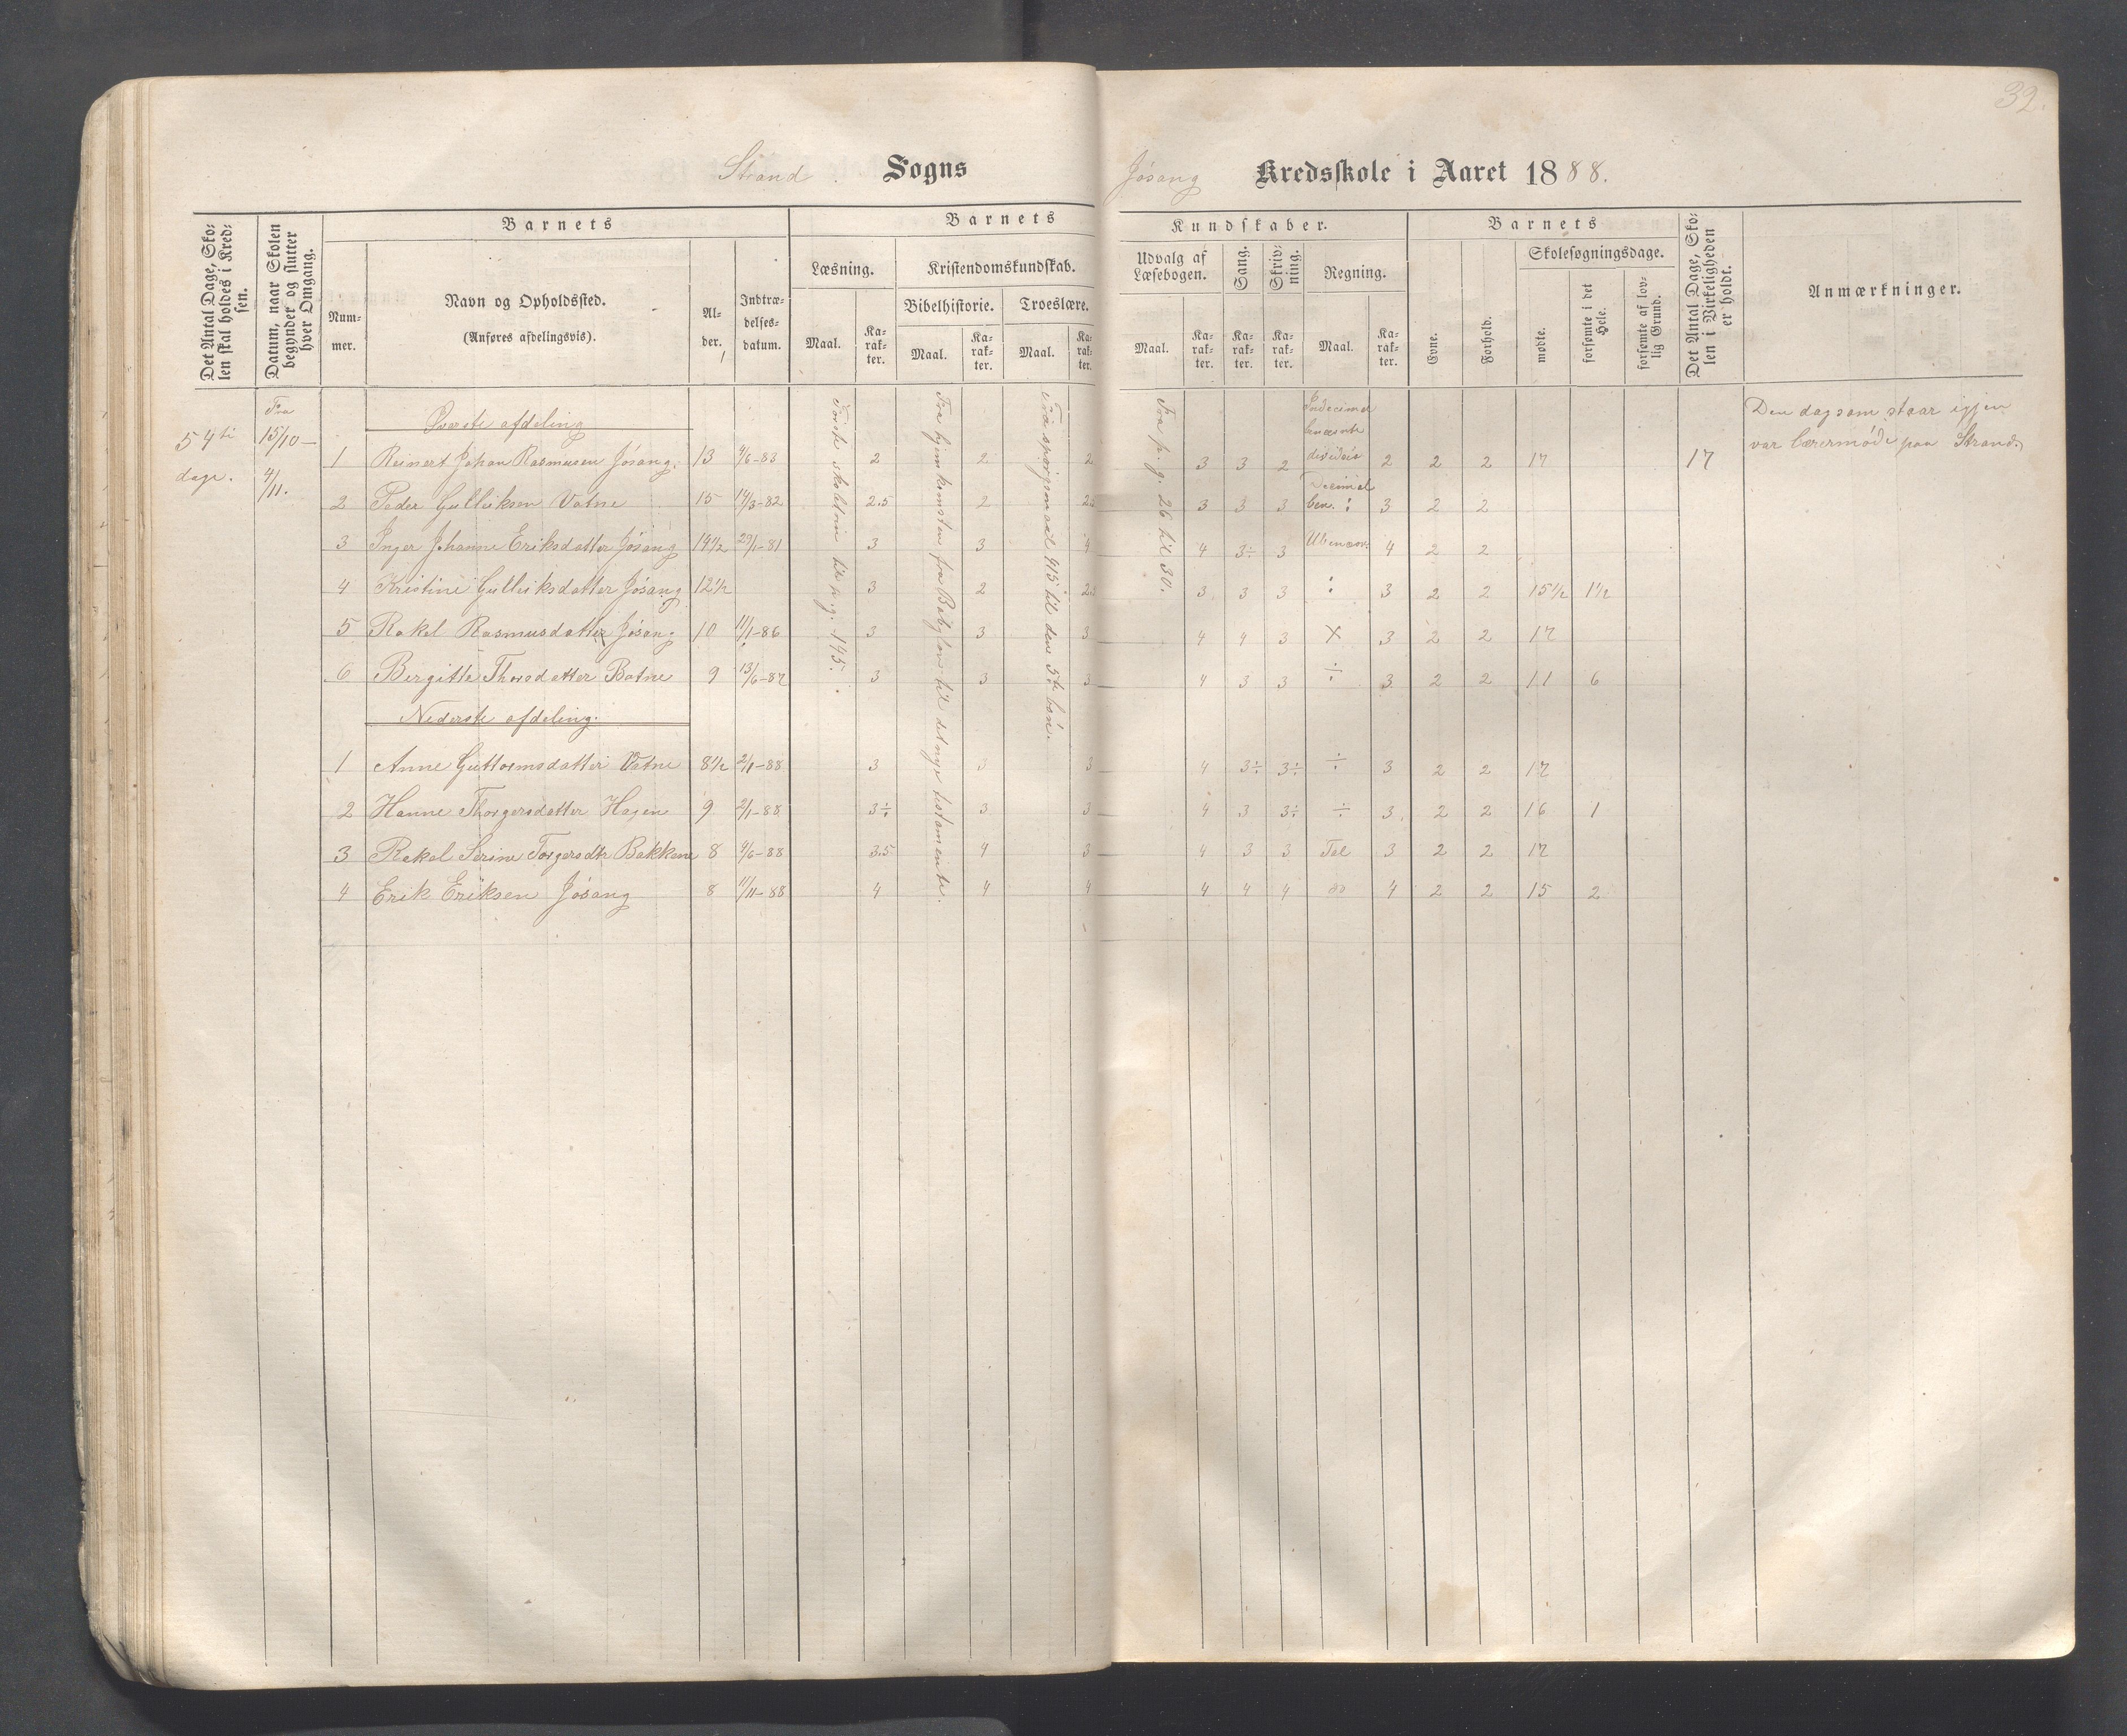 32.
Strand. Sogns
Jósang Kredsskole i Aaret 1888.
Det Antal Dage, Skolen skal holdes i Kredsen.
Datum, naar Skolen begynder og slutter hver Omgang.
Barnets
Nummer.
Navn og Opholdssted.
(Anføres afdelingsvis).
Alder.
Indtrædelsesdatum.
Barnets
Kundskaber.
Læsning.
Maal.
Karakter.
Kristendomskundskab.
Bibelhistorie.
Maal.
Karakter.
Troeslære.
Maal.
Karakter.
Udvalg af Læsebogen.
Maal.
Karakter.
Sang.
Karakter.
Skrivning.
Karakter.
Regning.
Maal.
Karakter.
Barnets
Evne.
Forhold.
Skolesøgningsdage.
mødte.
forsømte i det Hele.
forsømte af lovlig Grund.
Det Antal Dage, Skolen i Virkeligheden er holdt.
Anmærkninger.
54 ti dage.
Fra 15/10 — 4/11.
Øverste afdeling
1 Reinert Johan Rasmusen Jósang. 13 4/6-83 2 2 2 3 3 2 2 2 2 17 17
2 Peder Gulliksen Vatne 15 14/3-82 2.5 2 3 3 3 : 3 2 2
3 Inger Johanne Eriksdatter Jósang 14 1/2 29/1-81 3 3 4 4 3÷ 3 4 2 2
4 Kristine Gulliksdatter Jósang 12 1/2 3 2 3 3 3 : 3 2 2 15 1/2 1 1/2
5 Rakel Rasmusdatter Jósang 10 11/1-86 3 3 3 4 4 3 X 3 2 2 17
6 Birgitte Thorsdatter Botne 9 13/6-87 3 3 3 4 3 3 ÷ 3 2 2 11 6
Nederste afdeling.
1 Anne Guttormsdatter Vatne 8 1/2 2/1-88 3 3 3 4 3÷ 3÷ ÷ 3 2 2 17
2 Hanne Thorgersdatter Hagen 9 2/1-88 3÷ 3 3 4 3 3÷ ÷ 3 2 2 16 1
3 Rakel Serine Torgersdtr Bakkene 8 4/6-88 3.5 4 3 4 3 3 Tal 3 2 2 17
4 Erik Eriksen Jósang 8 11/11-88 4 4 4 4 4 4 do 4 2 2 15 2
til p.g. 145.
Fra hjemkomsten fra Babylon til det nye testamente.
Fra spørgsmaal 415 til den 5te bøn.
Fra p.g. 26 til 30.
Den dag som staar igjen
var lærermóde paa Strand.